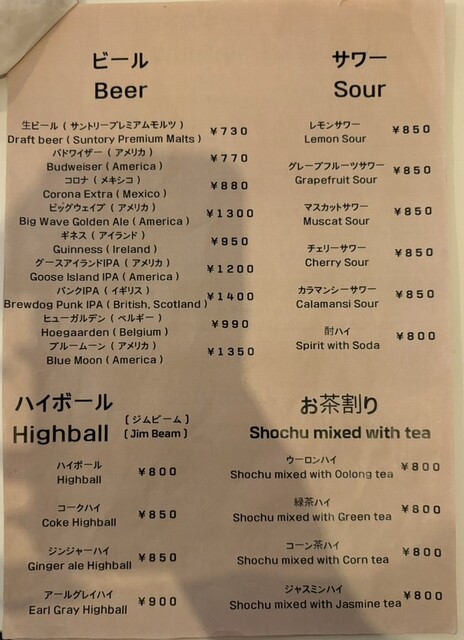 ビール
Beer
生ビール ( サントリープレミアムモルツ )
Draft beer ( Suntory Premium Malts ) ¥730
バドワイザー ( アメリカ )
Budweiser ( America ) ¥770
コロナ ( メキシコ )
Corona Extra ( Mexico ) ¥880
ビッグウェイブ ( アメリカ )
Big Wave Golden Ale ( America ) ¥1300
ギネス ( アイランド )
Guinness ( Ireland ) ¥950
グースアイランドIPA ( アメリカ )
Goose Island IPA ( America ) ¥1200
パンクIPA ( イギリス )
Brewdog Punk IPA ( British, Scotland ) ¥1400
ヒューガルデン ( ベルギー )
Hoegaarden ( Belgium ) ¥990
ブルームーン ( アメリカ )
Blue Moon ( America ) ¥1350
サワー
Sour
レモンサワー
Lemon Sour ¥850
グレープフルーツサワー
Grapefruit Sour ¥850
マスカットサワー
Muscat Sour ¥850
チェリーサワー
Cherry Sour ¥850
カラマンシーサワー
Calamansi Sour ¥850
酎ハイ
Spirit with Soda ¥800
ハイボール [ ジムビーム ]
Highball [ Jim Beam ]
ハイボール
Highball ¥800
コークハイ
Coke Highball ¥850
ジンジャーハイ
Ginger ale Highball ¥850
アールグレイハイ
Earl Gray Highball ¥900
お茶割り
Shochu mixed with tea
ウーロンハイ
Shochu mixed with Oolong tea ¥800
緑茶ハイ
Shochu mixed with Green tea ¥800
コーン茶ハイ
Shochu mixed with Corn tea ¥800
ジャスミンハイ
Shochu mixed with Jasmine tea ¥800